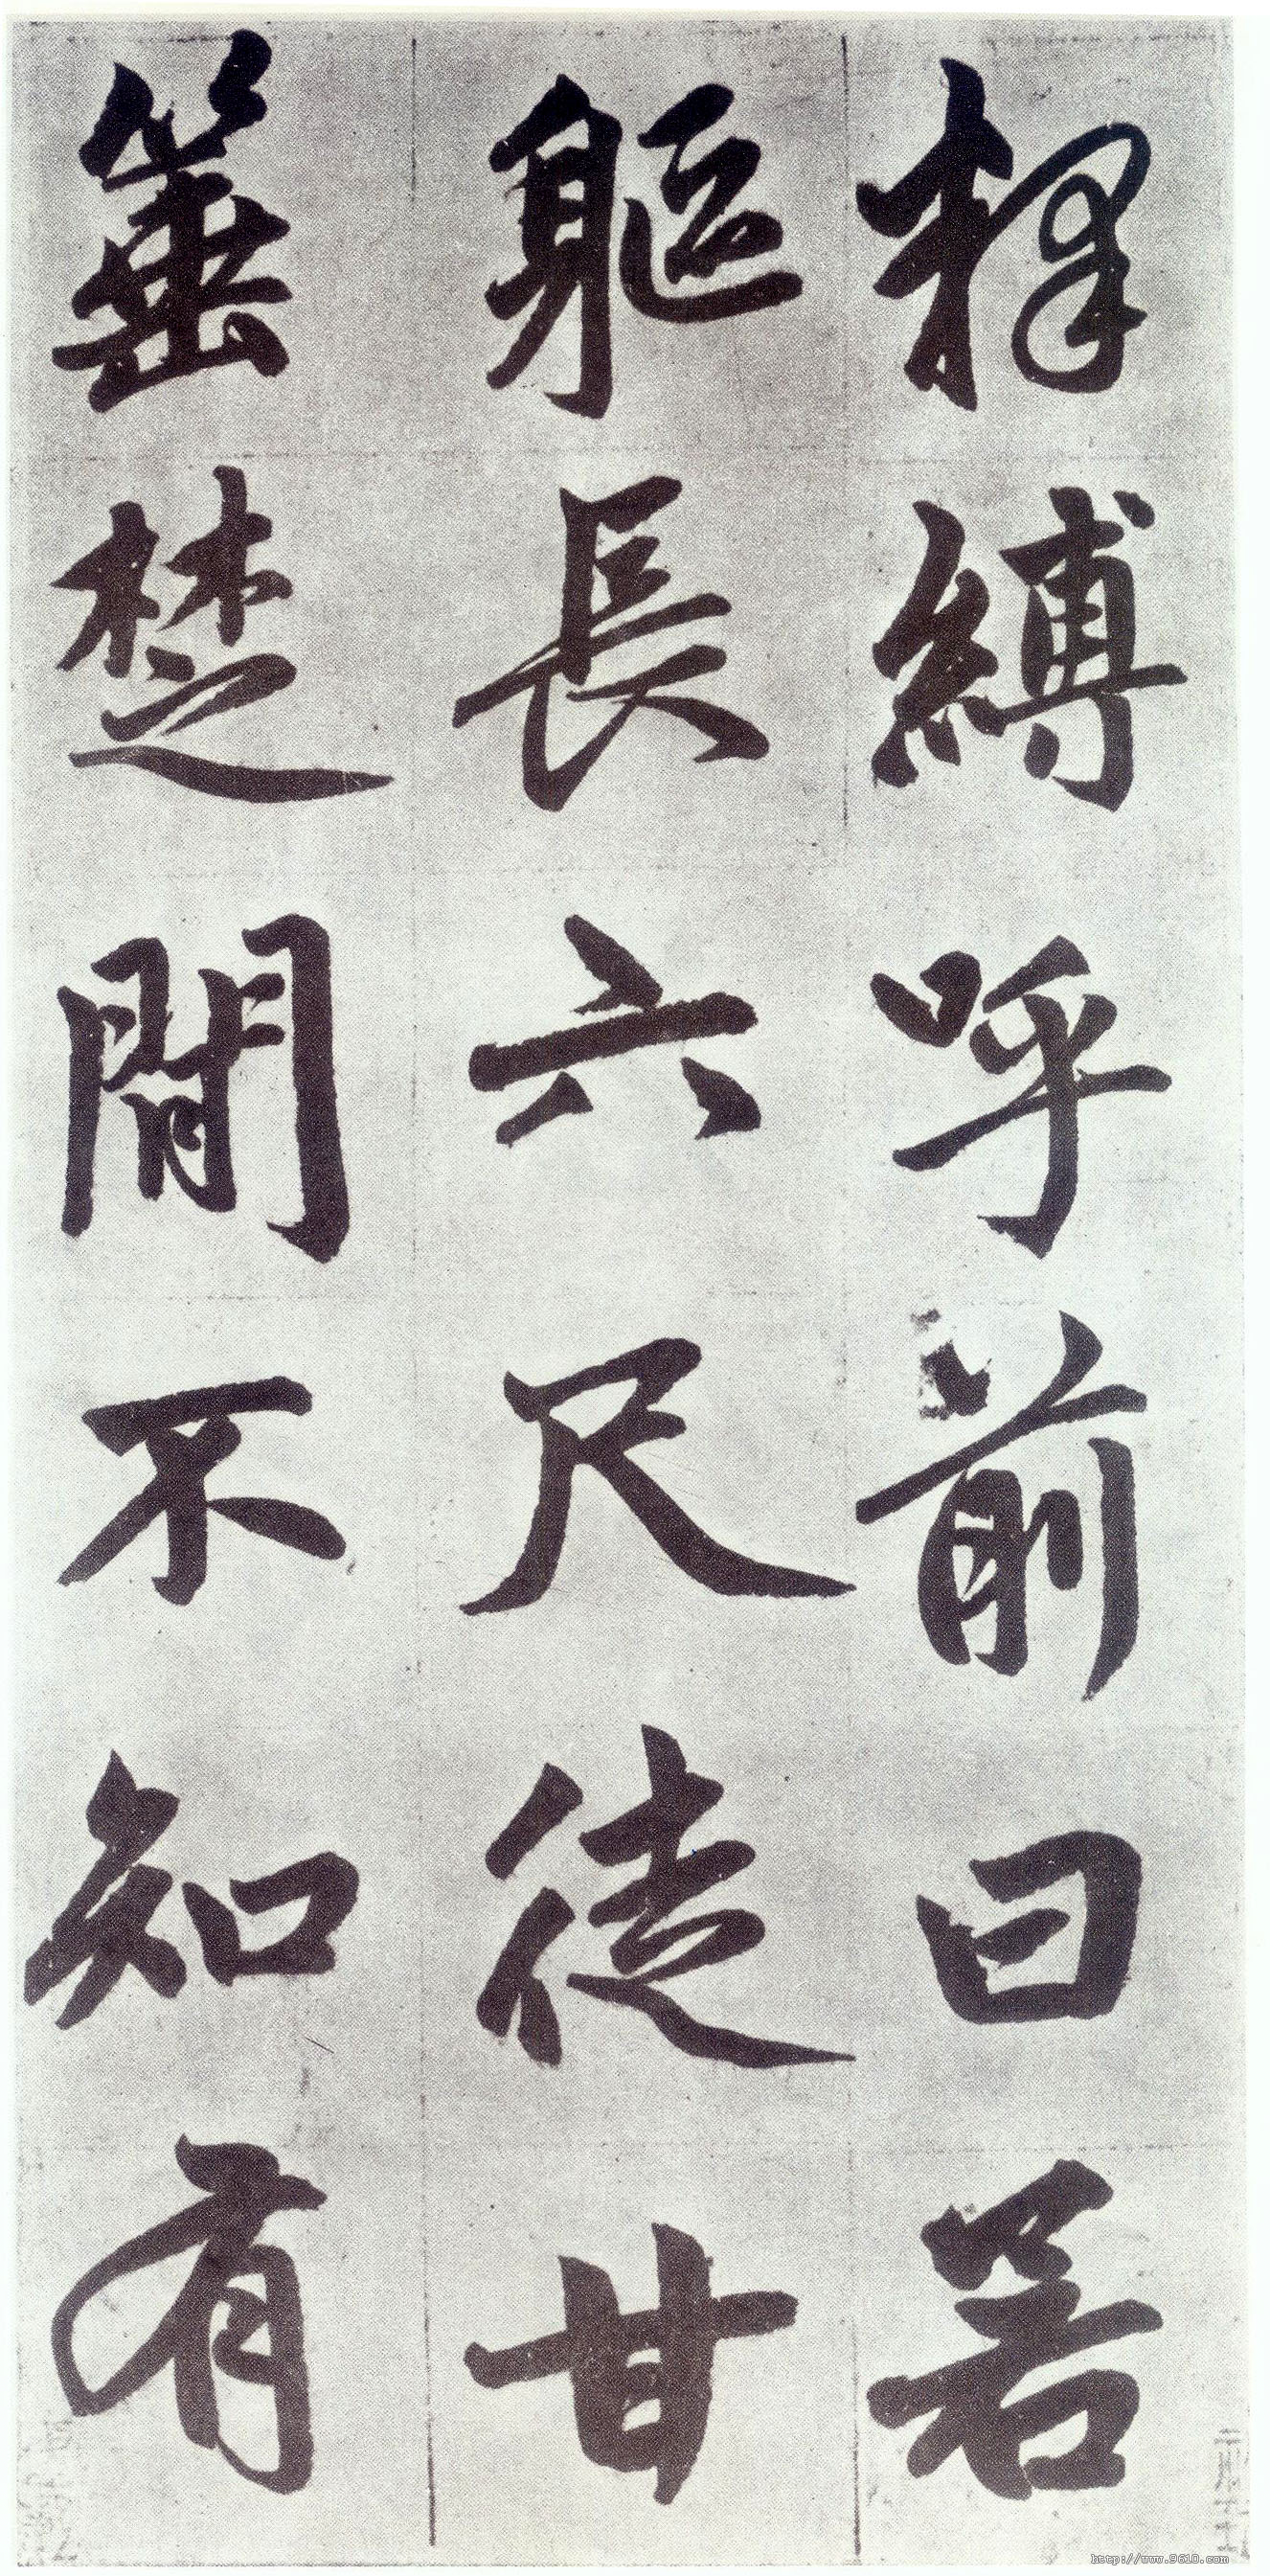 择縛呼前曰若
軀長六尺徒甘
箠楚間不知有
http://www.9610.com